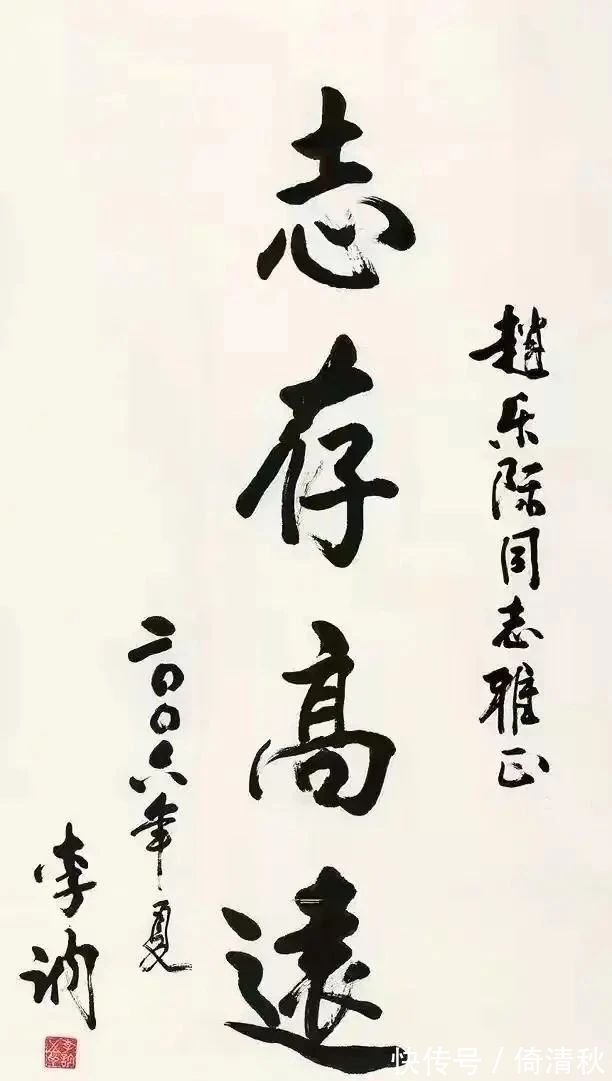 趙乐际同志雅正
志存高遠
二〇〇六年夏
李讷
快传号/倚清秋